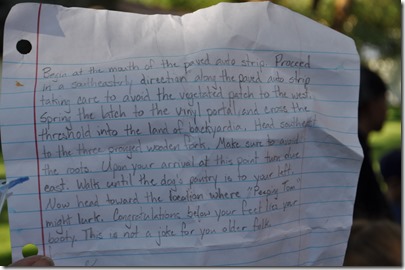 Begin at the mouth of the paved auto strip. Proceed
in a southeasterly direction along the paved auto strip
taking care to avoid the vegetated patch to the west.
Spring the latch to the vinyl portal, and cross the
threshold into the land of backyardia. Head southeast
to the three pronged wooden fork. Make sure to avoid
the roots. Upon your arrival at this point turn due
east. Walk until the dog's pantry is to your left.
Now head toward the location where "Peeping Tom"
might lurk. Congratulations below your feet lies your
booty. This is not a joke for you older folk.